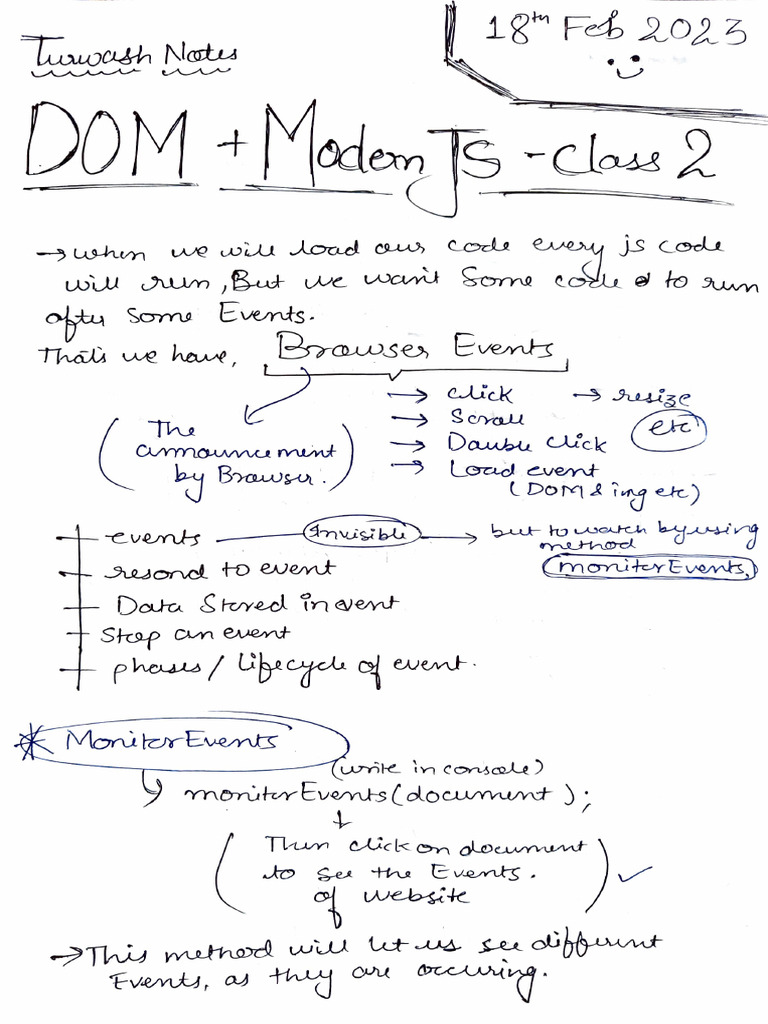 Turwash Notes
18th Feb 2023
DOM + Modern JS - Class 2
→ when we will load our code every js code
will run, But we want some code to run
after some Events.
That's we have, Browser Events
(The
announcement
by Browser.)
→ click → resize
→ Scroll etc
→ Double click
→ Load event
(DOM & img etc)
events — Invisible → but to watch by using
method
moniterEvents,
resond to event
Data Stored in event
Stop an event
phases / lifecycle of event.
* MoniterEvents
(write in console)
moniterEvents(document);
(Then click on document
to see the Events.
of website) ✓
→ This method will let us see different
Events, as they are occuring.